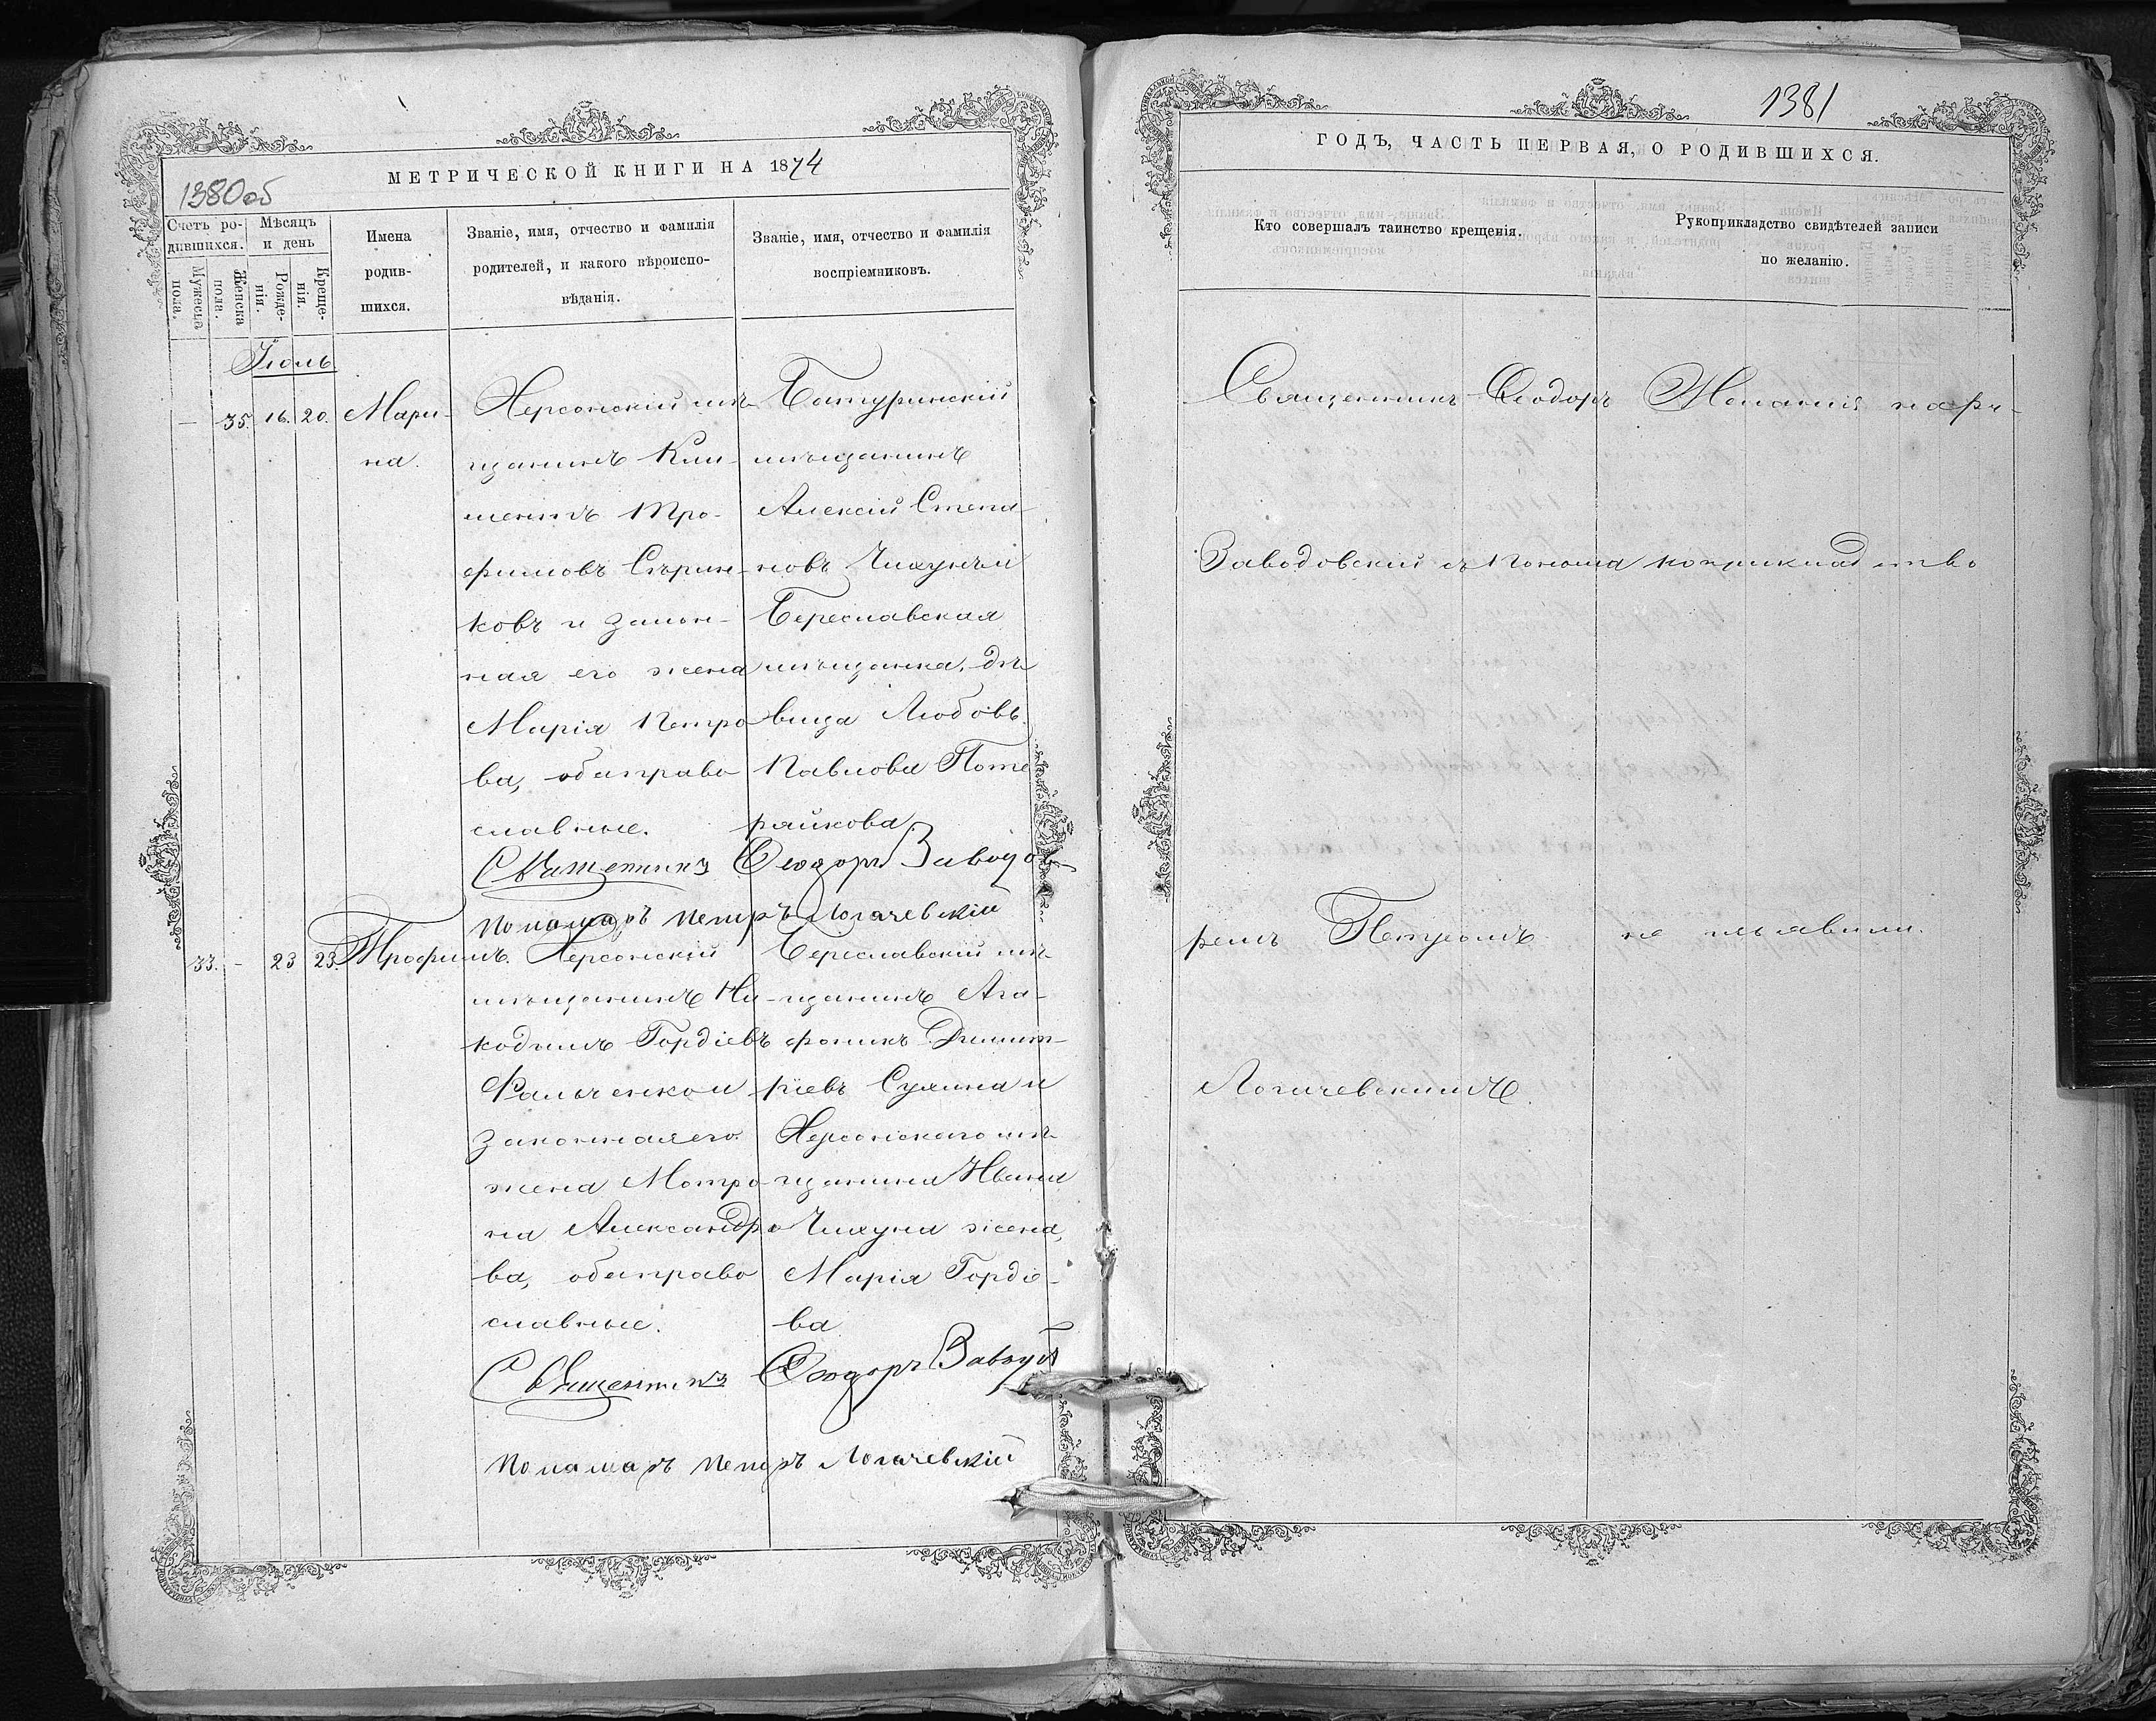 МЕТРИЧЕСКОЙ КНИГИ НА 1874
1380 об
Счетъ ро-
дившихся.
Мужеска
пола.
Женска
пола.
Мѣсяцъ
и день
Рожде-
нія.
Креще-
нія.
Имена
родив-
шихся.
Званіе, имя, отчество и фамилія
родителей, и какого вѣроиспо-
вѣданія.
Званіе, имя, отчество и фамилія
воспріемниковъ.
Іюль
— 35. 16. 20. Мари-
на.
Херсонскій мѣ-
щанинъ Кли-
ментъ Тро-
фимовъ Сѣрин-
ковъ и закон-
ная его жена
Марія Петро
ва, оба право
славные.
Батуринскій
мѣщанинъ
Алексій Степа
новъ Чихунъ и
Береславская
мѣщанка, дѣ
вица Любовь
Павлова Поте
райкова
Священникъ Ѳеодоръ Заводов
Пономарь Петръ Логачевскій
33. — 23 23. Трофимъ.
Херсонскій
мѣщанинъ Ни-
кодимъ Гордіевъ
Фальченко и
законная его
жена Матро
на Александро
ва, оба право
славные.
Береславскій мѣ-
щанинъ Ага-
фоникъ Димит-
ріевъ Сухина и
Херсонскаго мѣ-
щанина Ивана
Чихуна жена,
Марія Гордіе-
ва
Священникъ Ѳеодоръ Завод
Пономарь Петръ Логачевскій
1381
ГОДЪ, ЧАСТЬ ПЕРВАЯ, О РОДИВШИХСЯ.
Кто совершалъ таинство крещенія.
Рукоприкладство свидѣтелей записи
по желанію.
Священникъ Ѳеодоръ
Заводовскій съ Понома
ремъ Петромъ
Логачевскимъ.
Желанія на ру-
коприкладство
не изъявили.